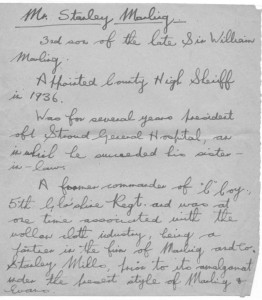 Mr. Stanley Marling
3rd son of the late Sir William
Marling.
Appointed County High Sheriff
in 1936.
Was for several years president
of Stroud General Hospital, as
in which he succeeded his sister-
in-law.
A former commander of "C" Coy.
5th Glo'shire Regt. and was at
one time associated with the
woollen cloth industry, being a
partner in the firm of Marling and Co.
Stanley Mills, prior to its amalgamat
under the present style of Marling &
Evans